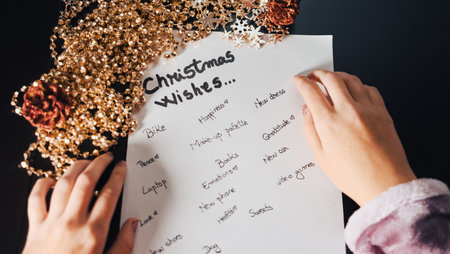 Christmas
Wishes...
Happiness
New dress
Bike
Make-up palette
Gratitude
Peace
Books
New car
Laptop
Emotions
Video games
New phone
Love
Health
Sweets
New shoes
Dog